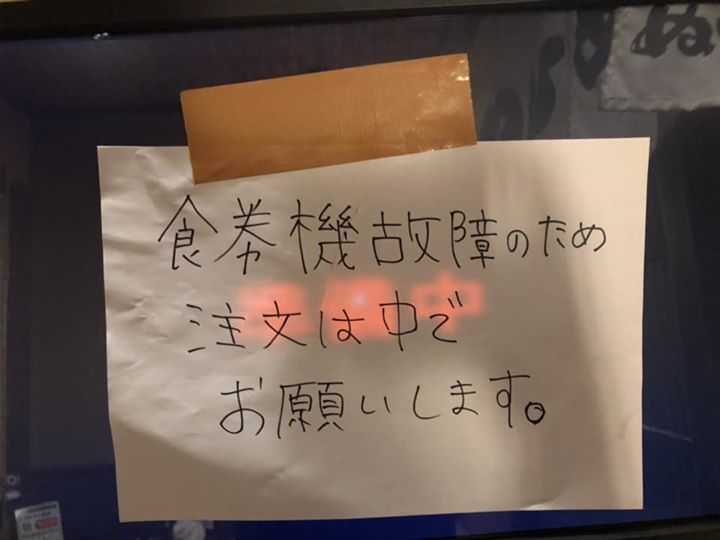 食券機故障のため
注文は中で
お願いします。
中
ぬ